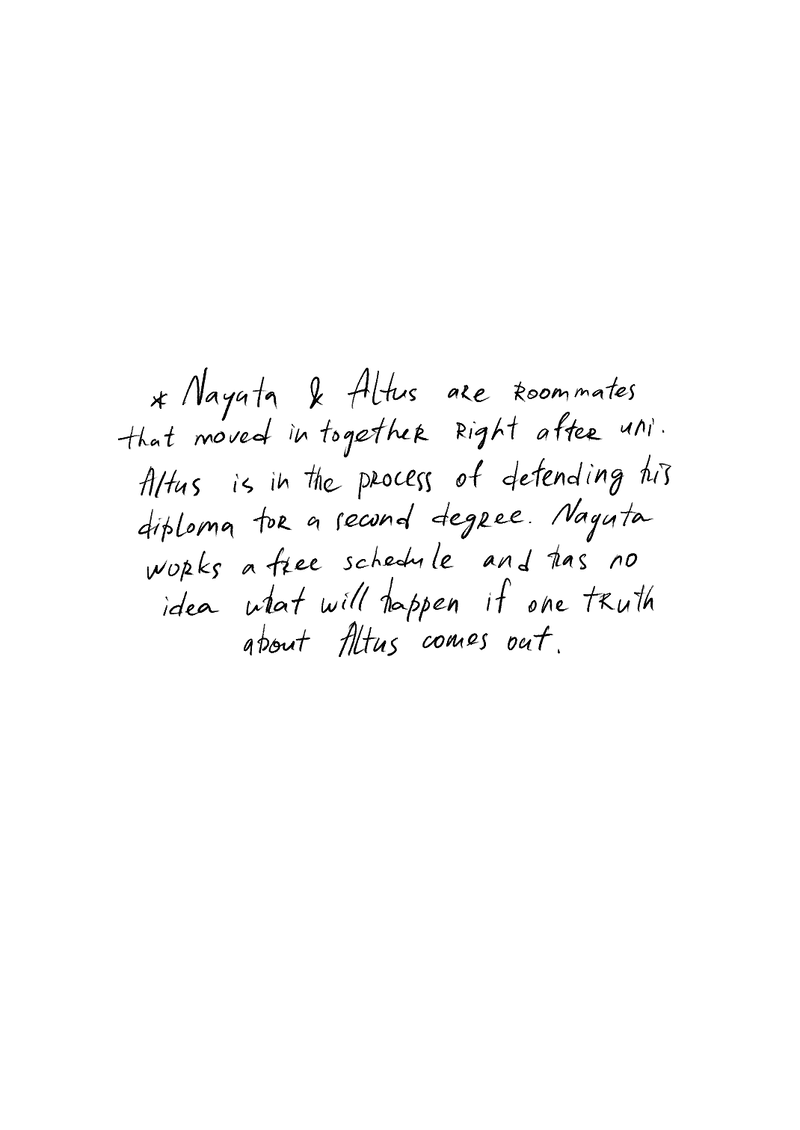 * Nayuta & Altus are roommates
that moved in together right after uni.
Altus is in the process of defending his
diploma for a second degree. Nayuta
works a free schedule and has no
idea what will happen if one truth
about Altus comes out.